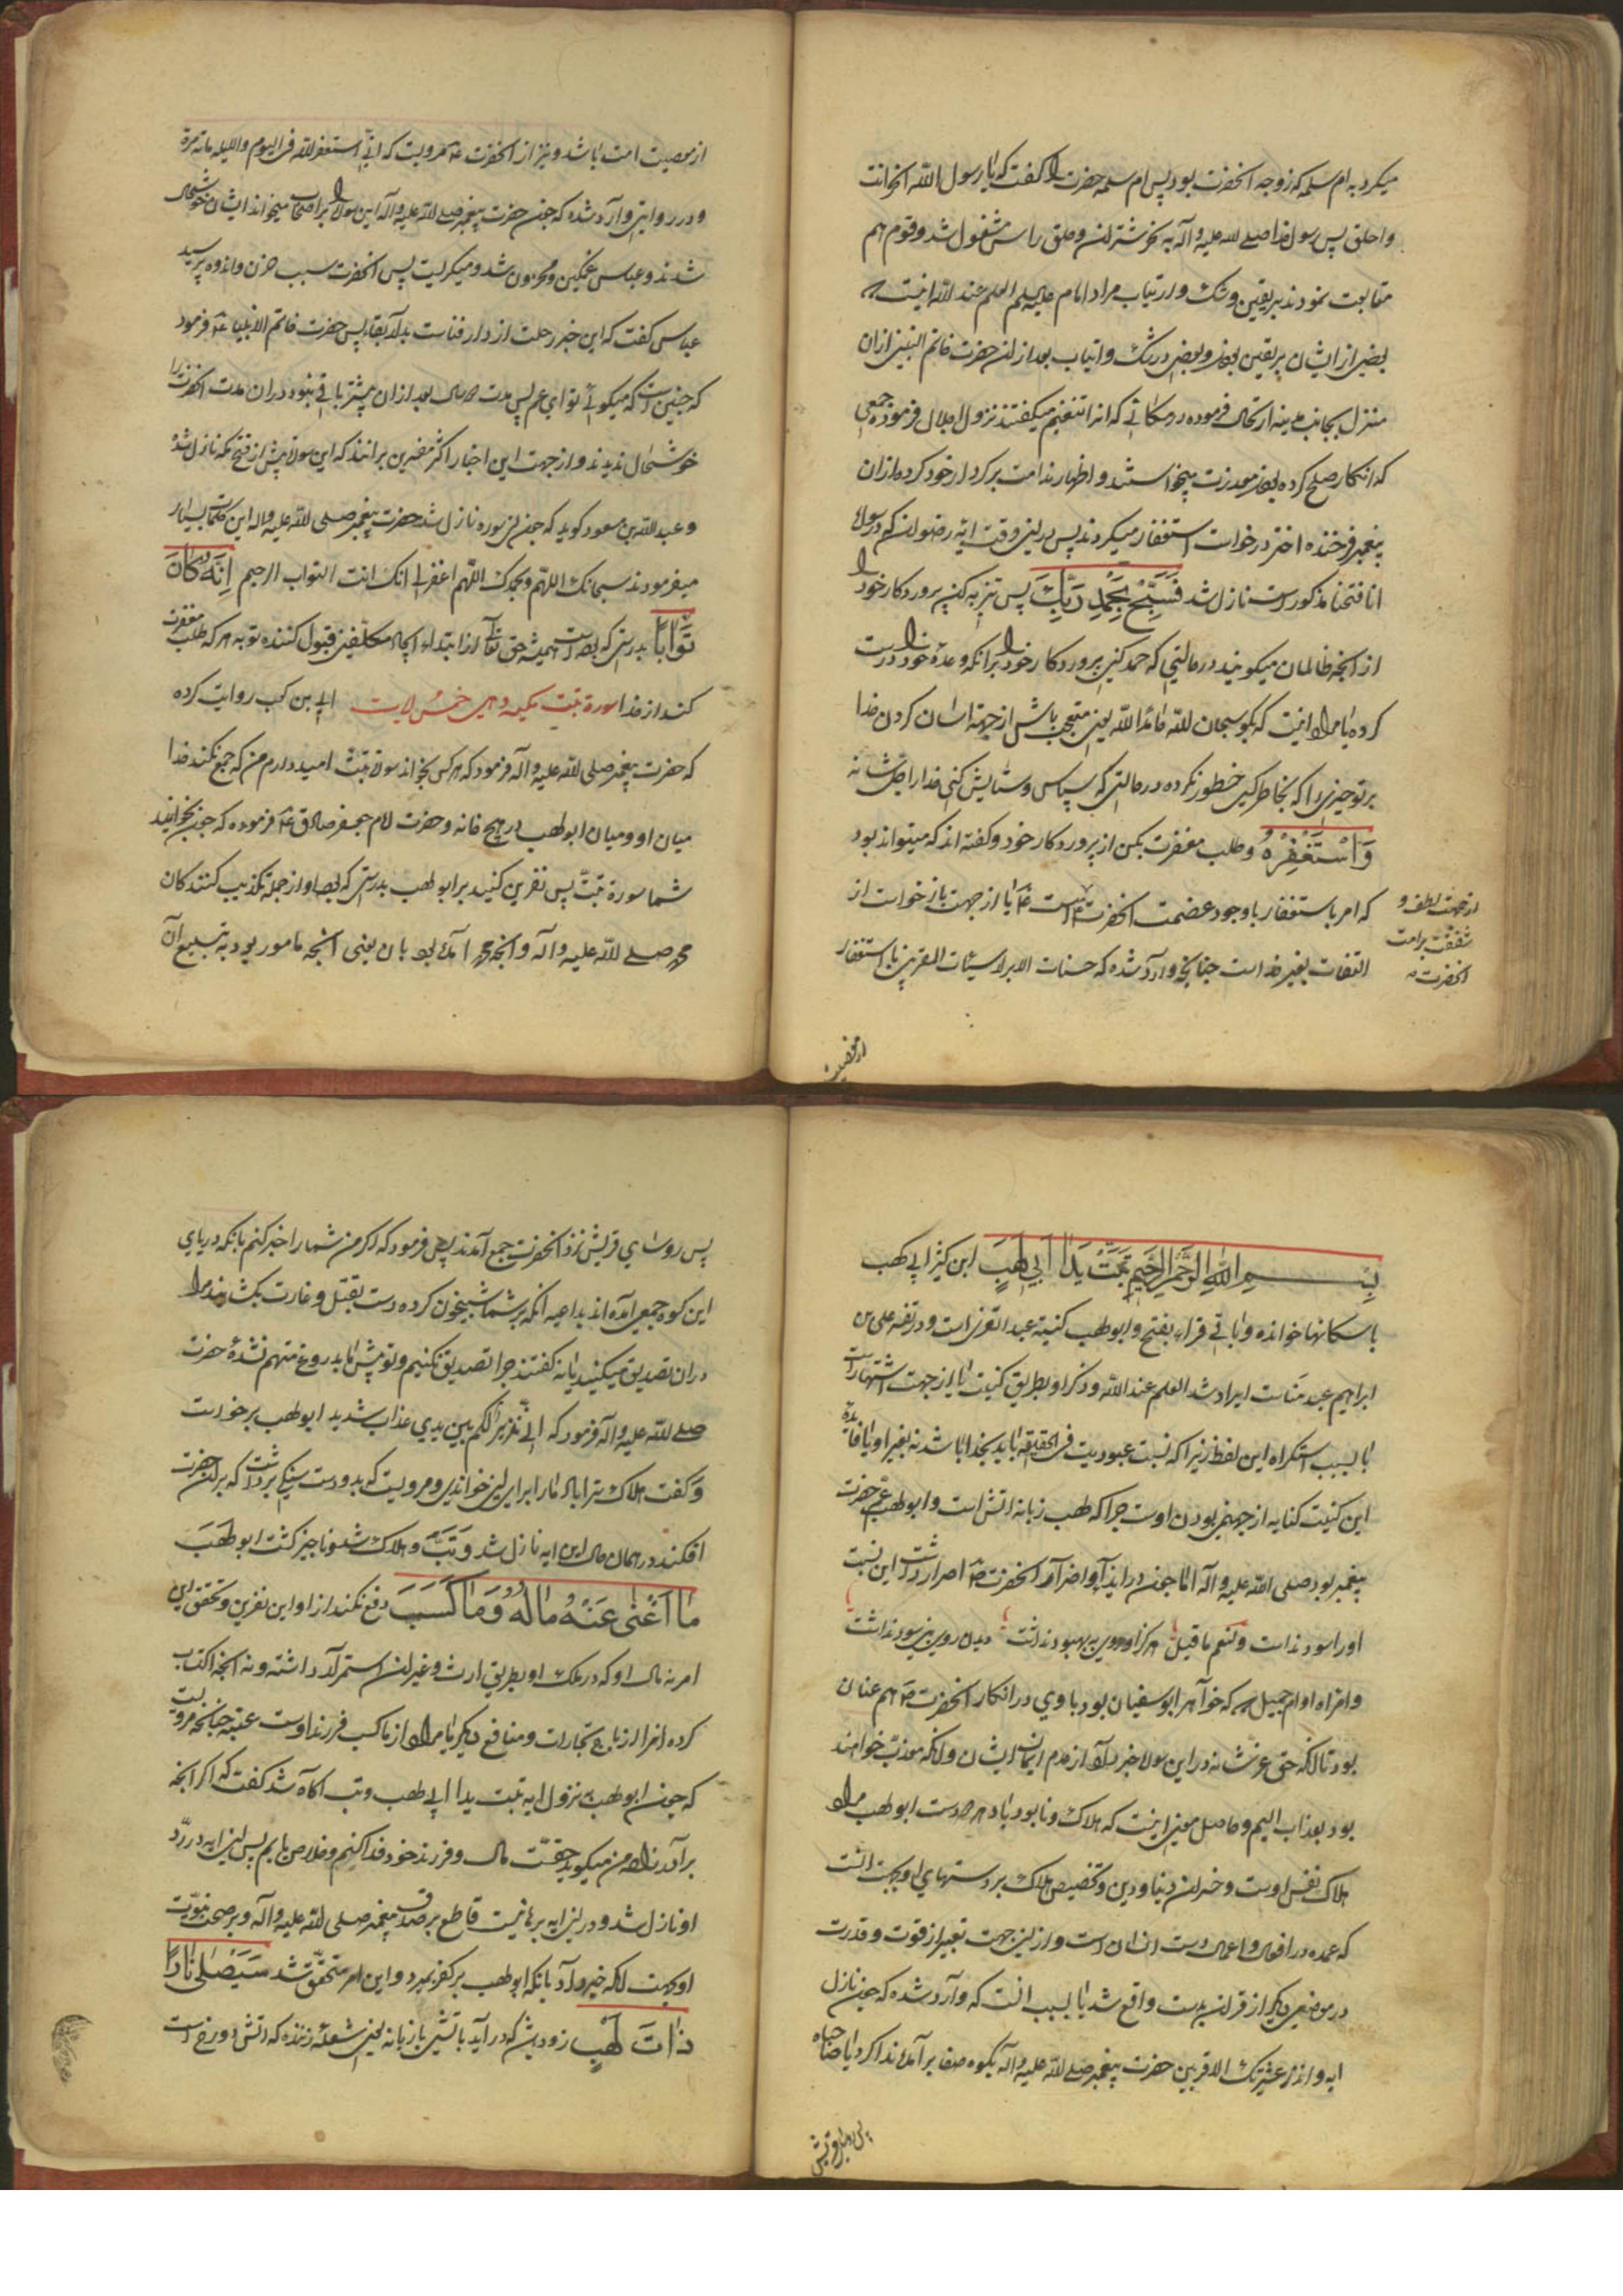 میکرد به ام سلمه که زوجه انحضرت بود پس ام سلمه حضرت را کفت که یا رسول الله انحر انت
واحلق پس رسول خدا صلی الله علیه و آله به نحر شتران و حلق راس مشغول شد و قوم هم
متابعت نمودند بر یقین و شک و ارتیاب مراد امام علیه السلم العلم عند الله اینست که
بعضی از ایشان بر یقین بودند و بعضی در شک و ارتیاب بعد از ان حضرت خاتم النبیین ازان
منزل بجانب مدینه ارتحال فرموده در مکانی که انرا تنعیم میکفتند نزول اجلال فرموده جمعی
که انکار صلح کرده بودند معذرت میخواستند و اظهار ندامت بر کردار خود کرده ازان
پیغمبر فرخنده اختر درخواست استغفار میکردند پس درین وقت ایه رضوان که در سوره
انا فتحنا مذکورست نازل شد فَسَبِّحْ بِحَمْدِ رَبِّكَ پس تنزیه کن پروردکار خود را
از انچه ظالمان میکویند در حالتی که حمد کنی پروردکار خود را برانکه وعدهٔ خود را درست
کرده یا مراد اینست که بکو سبحان الله حامدا لله یعنی متعجب باش از جهة اسان کردن خدا
بر تو چیزی را که بخاطر کسی خطور نکرده در حالتی که سپاس و ستایش کنی خدا را جل شانه
وَاسْتَغْفِرْهُ و طلب مغفرت بکن از پروردکار خود و کفته اند که میتواند بود
که امر باستغفار با وجود عصمت انحضرت ع یا از جهت بازخواست از
از جهت لطف و
شفقت بر امت
انحضرت
التفات بغیر خداست چنانچه وارد شده که حسنات الابرار سیئات المقربین یا استغفار
از معصیت
از معصیت امت باشد و نیز از انحضرت ع مرویست که انی استغفر الله فی الیوم واللیله مائه مرة
و در روایتی وارد شده که چون حضرت پیغمبر صلی الله علیه و آله این سوره را بر اصحاب میخواند ایشان خوشحال
شدند و عباس غمکین و محزون شد و میکریست پس انحضرت سبب حزن و اندوه پرسید
عباس کفت که این خبر رحلت از دار فناست بدار بقا پس حضرت خاتم الانبیا ع فرمود
که چنین است که میکوئی تو ای عم پس مدت دو سال بعد ازان بیشتر باقی نبود و دران مدت انحضرت را
خوشحال ندیدند و از جهت این اخبار اکثر مفسرین برانند که این سوره پیش از فتح مکه نازل شده
و عبدالله بن مسعود کوید که چون این سوره نازل شد حضرت پیغمبر صلی الله علیه واله این کلمات بسیار
میفرمودند سبحانک اللهم وبحمدک اللهم اغفر لی انک انت التواب الرحیم اِنَّهُ كَانَ
تَوَّابًا بدرستی که بوده است همیشه حق تعالی از ابتداء ایجاد مکلفین قبول کننده توبه هر که طلب مغفرت
کند از خدا سورة تبت مکیه و هی خمس ایات ابی بن کعب روایت کرده
که حضرت پیغمبر صلی الله علیه و آله فرمود که هر کس بخواند سوره تبت امید دارم من که جمع نکند خدا
میان او و میان ابو لهب در هیچ خانه و حضرت امام جعفر صادق ع فرموده که چون بخوانید
شما سورة تبت پس نفرین کنید بر ابو لهب بدرستی که بود او از جمله تکذیب کنندکان
محمد صلی الله علیه و آله و انچه محمد آمده بود بان یعنی انچه مامور بود به تبلیغ آن
بِسْمِ اللهِ الرَّحْمٰنِ الرَّحِيمِ تَبَّتْ يَدَا اَبِي لَهَبٍ ابن کثیر ابی لهب
باسکان ها خوانده و باقی قراء بفتح و ابو لهب کنیة عبد العزی است و در تفسیر علی بن
ابراهیم عبد مناست ایراد شد العلم عند الله و ذکر او بطریق کنیت یا از جهت اشتهار است
یا بسبب استکراه این لفظ زیرا که نسبت عبودیت فی الحقیقه باید بخدا باشد نه بغیر او یا فایدهٔ
این کنیت کنایه از جهنمی بودن اوست چرا که لهب زبانه اتش است و ابو لهب عم حضرت
پیغمبر بود صلی الله علیه و آله اما چون در ایذا و اضرار انحضرت ص اصرار داشت این نسبت
او را سود نداست ولنعم ما قیل هر کرا روی به بهبود نداشت دیدن روی نبی سود نداشت
و امراه او ام جمیل که خواهر ابوسفیان بود با وی در انکار انحضرت ص هم عنان
بود تا انکه حق عز شانه در این سوره خبر داد از عدم ایمان ایشان و انکه معذب خواهند
بود بعذاب الیم و حاصل معنی اینست که هلاک و نابود باد هر دو دست ابو لهب مراد
هلاک نفس اوست و خسران دنیا و دین و تخصیص هلاک بر دستهای او بجهت انست
که عمده در افعال و اعمال دست انسان است و از این جهت تعبیر از قوت و قدرت
در موضعی دیکر از قران بدست واقع شد یا بسبب انست که وارد شده که چون نازل
ایه وانذر عشیرتک الاقربین حضرت پیغمبر صلی الله علیه و آله بکوه صفا بر آمده ندا کرد یا صباحاه
پس روسای قریش
پس روسای قریش نزد انحضرت جمع آمدند پس فرمود که اکر من شما را خبر کنم بانکه در پای
این کوه جمعی امده اند بداعیه انکه بر شما شبیخون کرده دست بقتل و غارت بکشایند مرا
دران تصدیق میکنید یا نه کفتند چرا تصدیق نکنیم و تو پیش ما بدروغ متهم نشدهٔ حضرت
صلی الله علیه و اله فرمود که انی نذیر لکم بین یدی عذاب شدید ابو لهب برخواست
و کفت هلاک ترا باد ما را برای این خواندی و مرویست که بدو دست سنکی برداشت که بر ان حضرت
افکند در همان حال این ایه نازل شد وَتَبَّ و هلاک شد و ناچیز کشت ابو لهب
مَا اَغْنٰى عَنْهُ مَالُهُ وَمَا كَسَبَ دفع نکند از او این نفرین و تحقق این
امر نه مال او که در ملک او بطریق ارث و غیر ان استمرار داشته و نه انچه اکتساب
کرده انرا از ارباح تجارات و منافع دیکر یا مراد از ما کسب فرزند اوست عتبه چنانچه مرویست
که چون ابو لهب بنزول ایه تبت یدا ابی لهب وتب اکاه شد کفت که اکر انچه
برادرزاده من میکوید حقست مال و فرزند خود فدا کنم و خلاص یابم پس این ایه در رد
او نازل شد و در این ایه برهانیست قاطع بر صدق پیغمبر صلی الله علیه و آله و بر صحت نبوت
او بجهت انکه خبر داد بانکه ابو لهب بر کفر بمیرد و این امر متحقق شد سَيَصْلٰى نَارًا
ذَاتَ لَهَبٍ زود باشد که در آید باتشی با زبانه یعنی شعله زننده که اتش دوزخ است